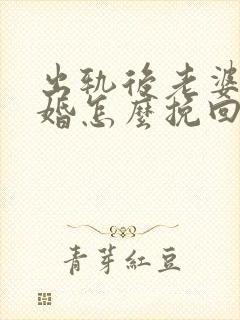 出軌後老婆
婚怎麼挽回
青芽紅豆